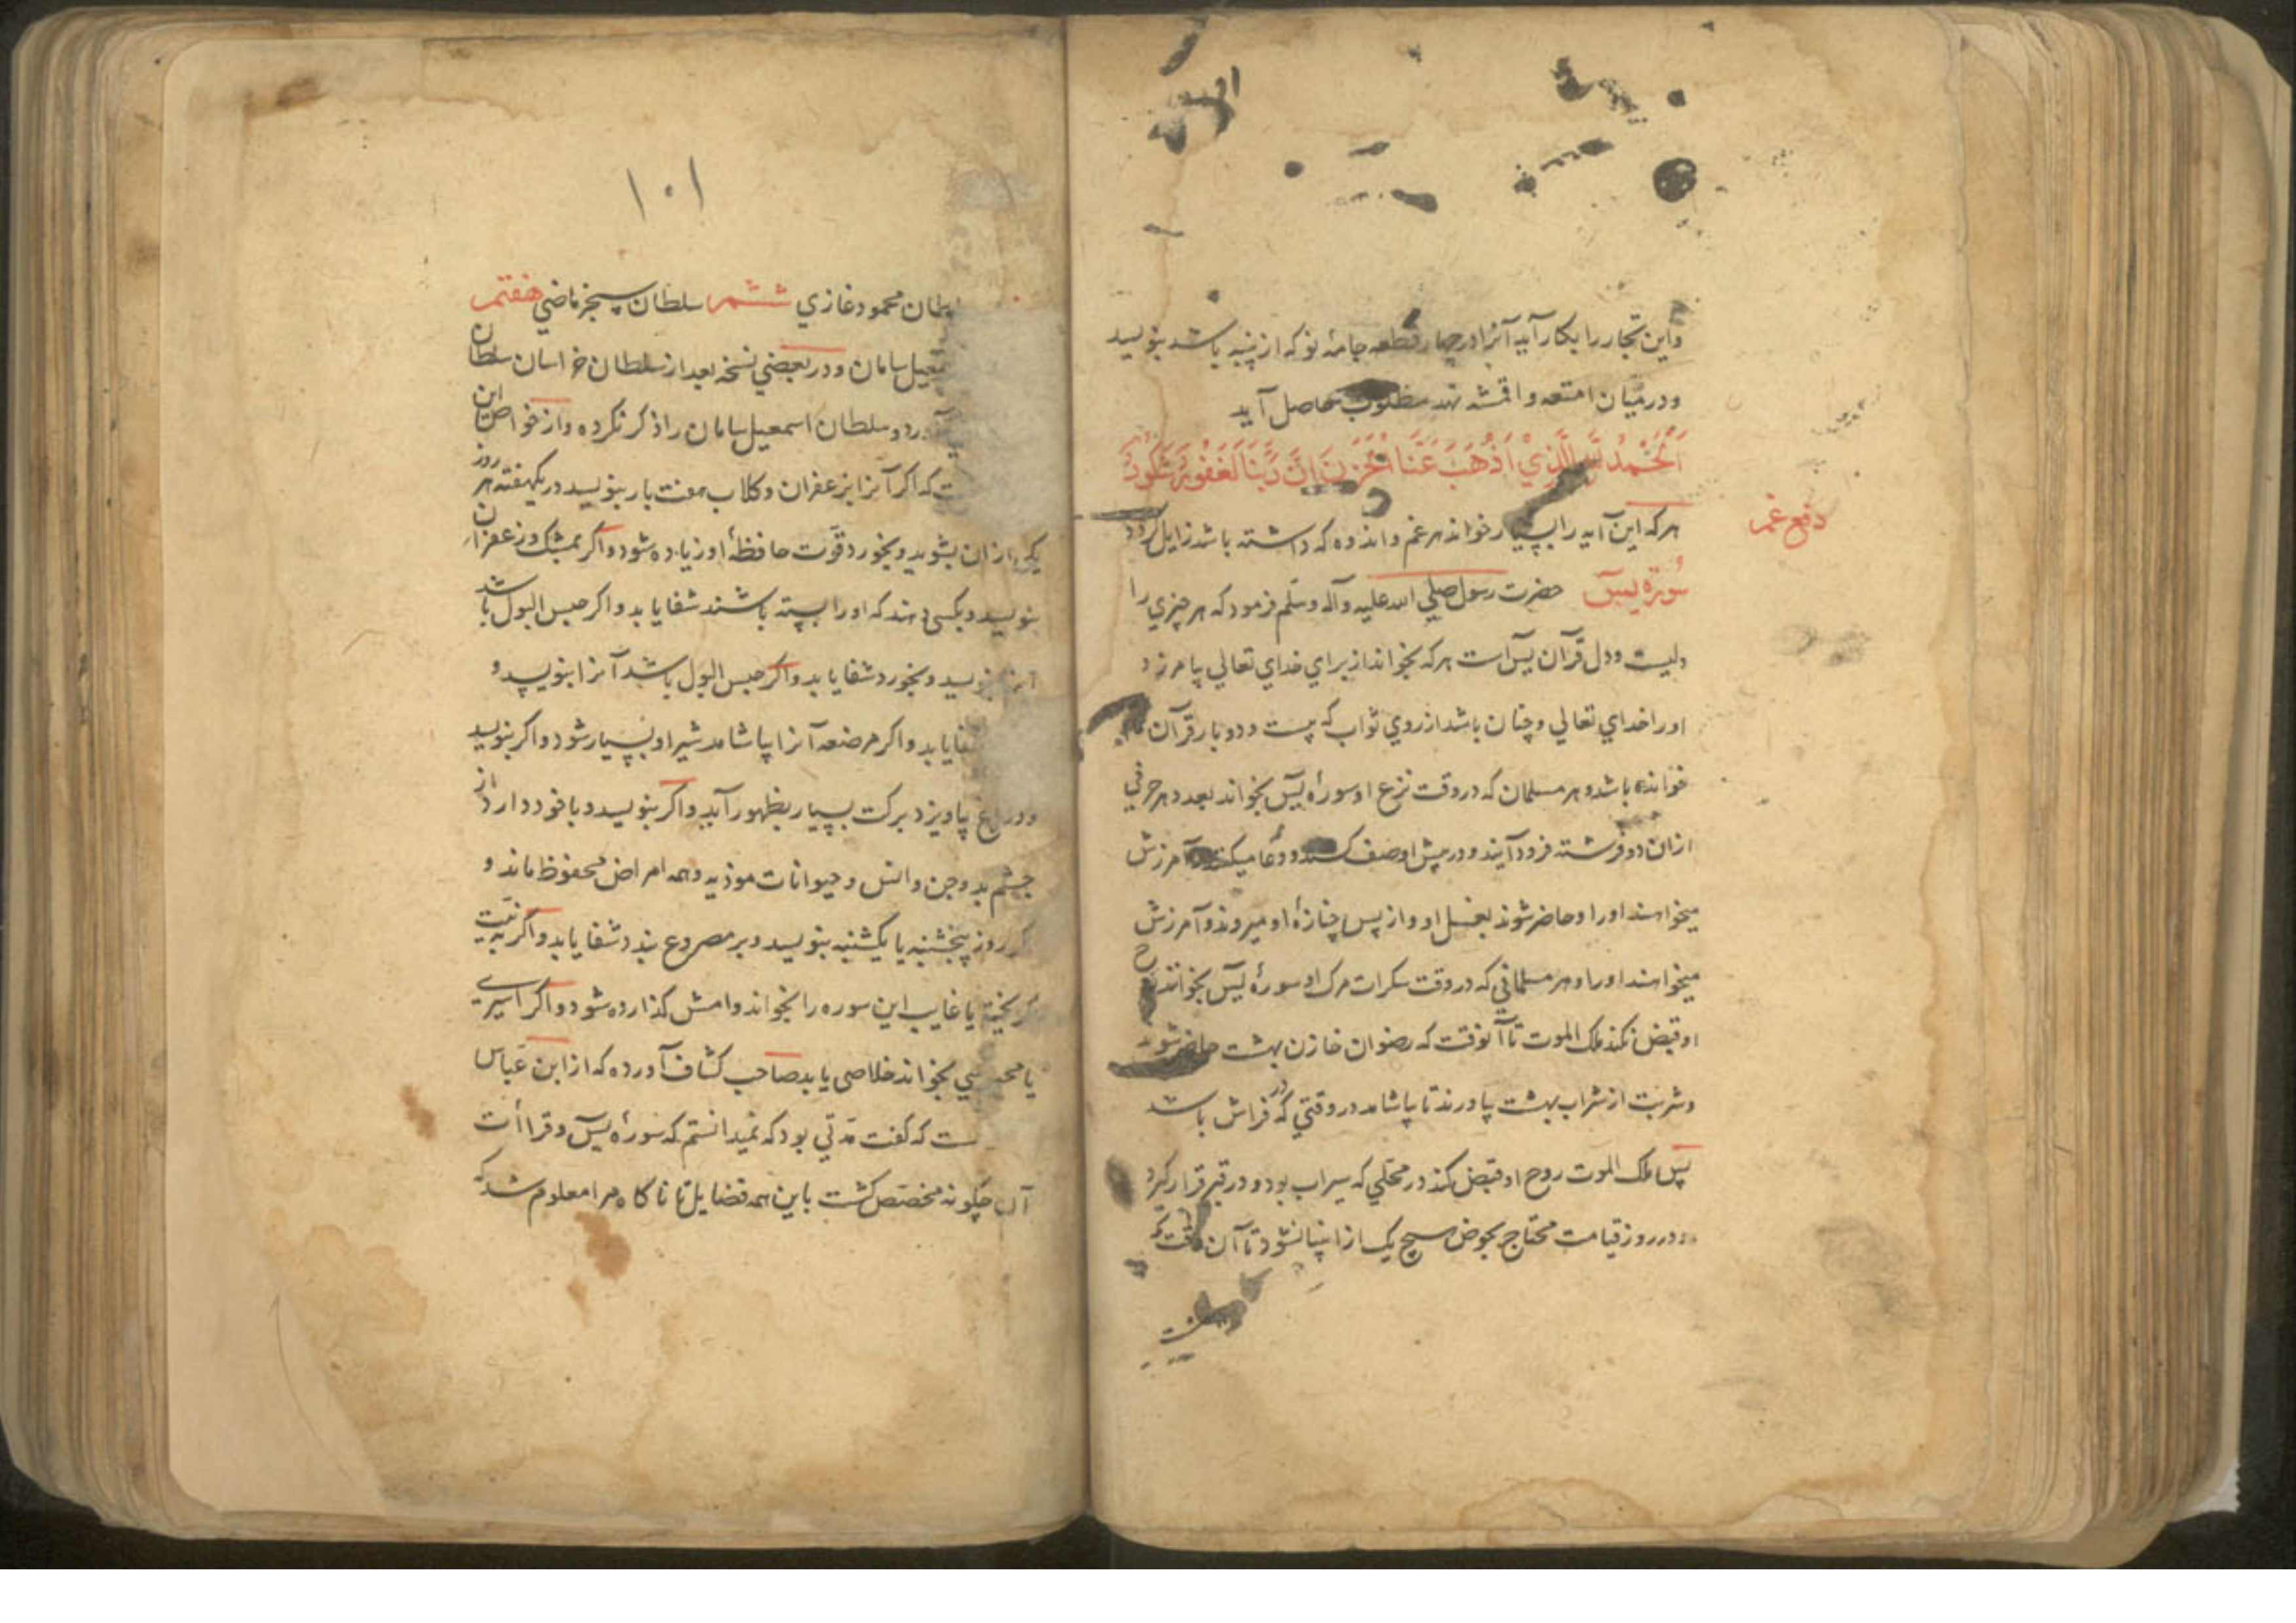 واین تجار را بکار آید آنرا در چهار قطعه جامه نو که از پنبه باشد بنویسد
و در میان امتعه و اقمشه نهد مطلوب حاصل آید
اَلْحَمْدُ لِلّهِ الَّذِيْ اَذْهَبَ عَنَّا الْحَزَنَ اِنَّ رَبَّنَا لَغَفُوْرٌ شَكُوْرٌ
دفع غم
هر که این آیه را بسیار خواند هر غم و اندوه که داشته باشد زایل کردد
سُوْرَه یٰسٓ حضرت رسول صلي الله علیه وآله وسلّم فرمود که هر چیزي را
دلیست و دل قرآن یسٓ است هر که بخواند از براي خداي تعالي بیامرزد
اورا خداي تعالي و چنان باشد از روي ثواب که بیست و دو بار قرآن
خوانده باشد و هر مسلمان که در وقت نزع او سورهٔ یسٓ بخواند بعدد هر حرفي
ازان دو فرشته فرود آیند و در پیش او صف کشند و دعا میکنند و آمرزش
میخواهند اورا و حاضر شوند بغسل او و از پس جنازهٔ او میروند و آمرزش
میخواهند اورا و هر مسلماني که در وقت سکرات مرک او سورهٔ یسٓ بخوانند روح
او قبض نکند ملک الموت تا آنوقت که رضوان خازن بهشت حاضر شود
و شربت از شراب بهشت بیاورند تا بیاشامد در وقتي که در فراش باشد
پس ملک الموت روح او قبض کند در محلّي که سیراب بود و در قبر قرار کیرد
و در روز قیامت محتاج بحوض هیچ یک از انبیا نشود تا آن وقت که
۱۰۱
سلطان محمود غازي ششم سلطان سنجر ماضي هفتم
اسمعیل سامان و در بعضي نسخه بعد از سلطان خراسان سلطان
آورد و سلطان اسمعیل سامان را ذکر نکرده و از خواص این
است که اکر آنرا بزعفران و کلاب هفت بار بنویسد در یکهفته هر روز
یکي ازان بشوید و بخورد قوّت حافظهٔ او زیاده شود و اکر بمشک و زعفران
بنویسد و بکسي دهند که اورا بسته باشند شفا یابد و اکر حبس البول باشد
آنرا بنویسد و بخورد شفا یابد و اکر حبس البول باشد آنرا بنویسد و
شفا یابد و اکر مرضعه آنرا بیاشامد شیر او بسیار شود و اکر بنویسد
و در باغ بیاویزد برکت بسیار بظهور آید و اکر بنویسد و با خود دارد از
چشم بد و جن و انس و حیوانات موذیه و همه امراض محفوظ ماند و
اکر روز پنجشنبه یا یکشنبه بنویسد و بر مصروع بندد شفا یابد و اکر به نیّت
کریخته یا غایب این سوره را بخواند وامش کذارده شود و اکر اسیرے
یا محبوسي بخواند خلاصی یابد صاحب کشاف آورده که از ابن عبّاس
است که کفت مدّتي بود که نمیدانستم که سورهٔ یسٓ و قراأت
آن چکونه مخصّص کشت باین همه فضایل تا ناکاه مرا معلوم شد که